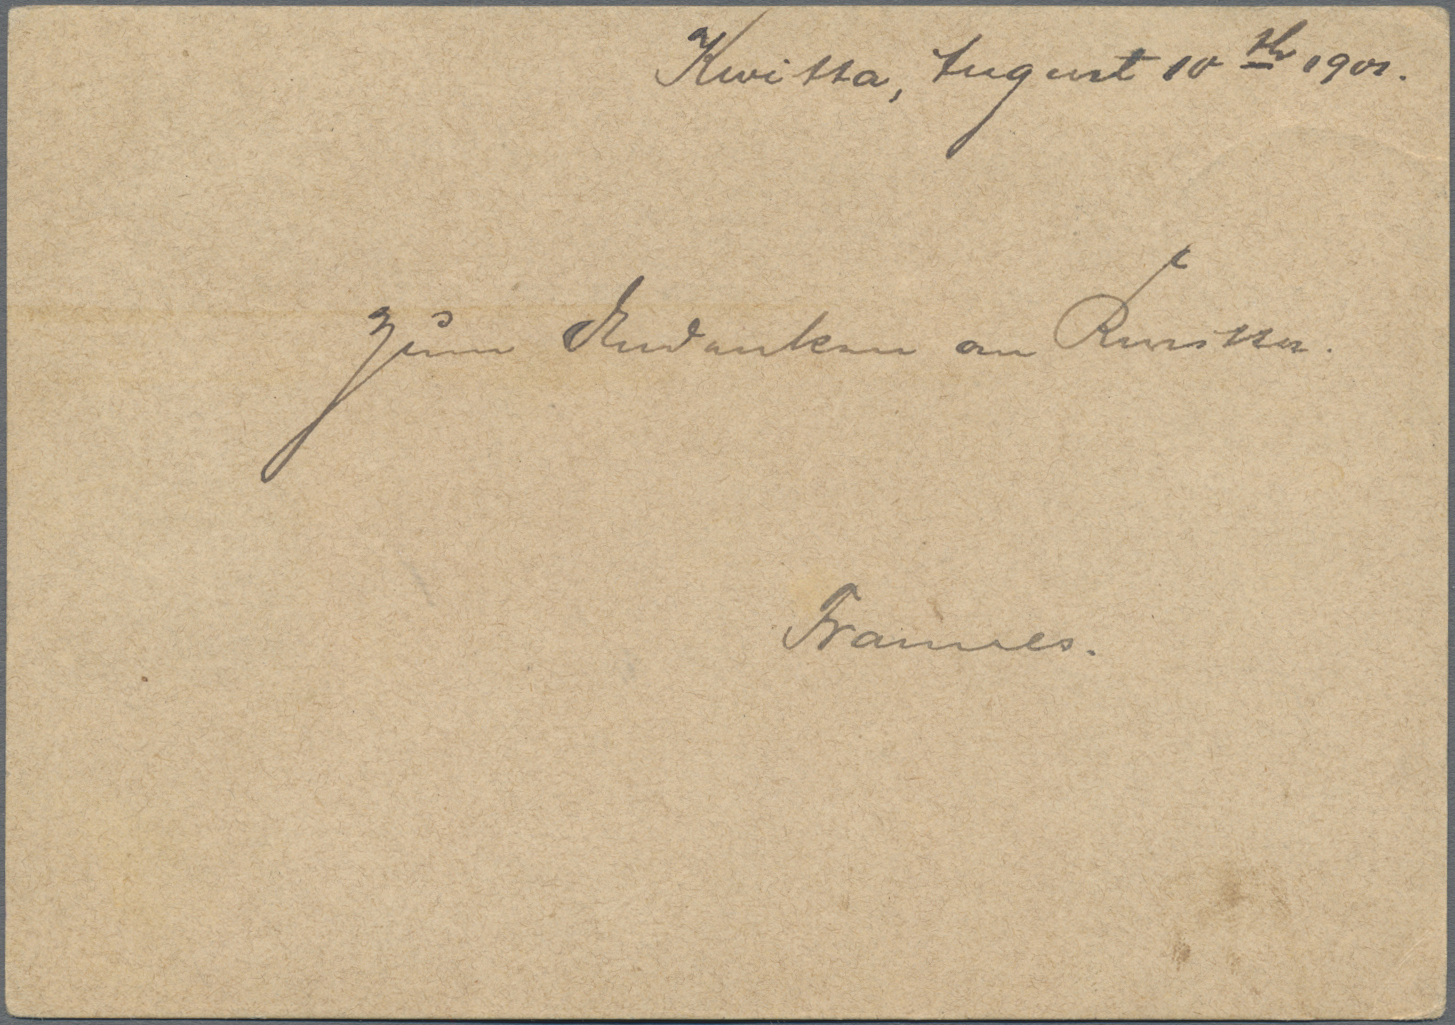 Kwitta, August 10th 1901.
Zum Andenken an Kwitta.